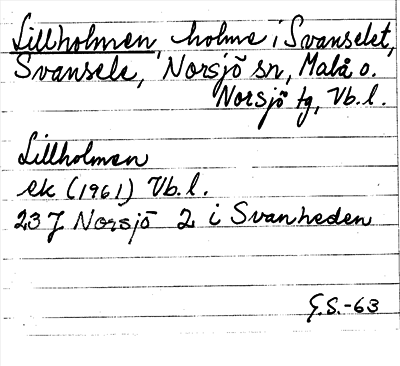 Lillholmen, holme i Svanselet,
Svansele, Norsjö sn, Malå o.
Norsjö tg, Vb. l.
Lillholmen
ek (1961) Vb. l.
23 J Norsjö 2 i Svanheden
G.S.-63